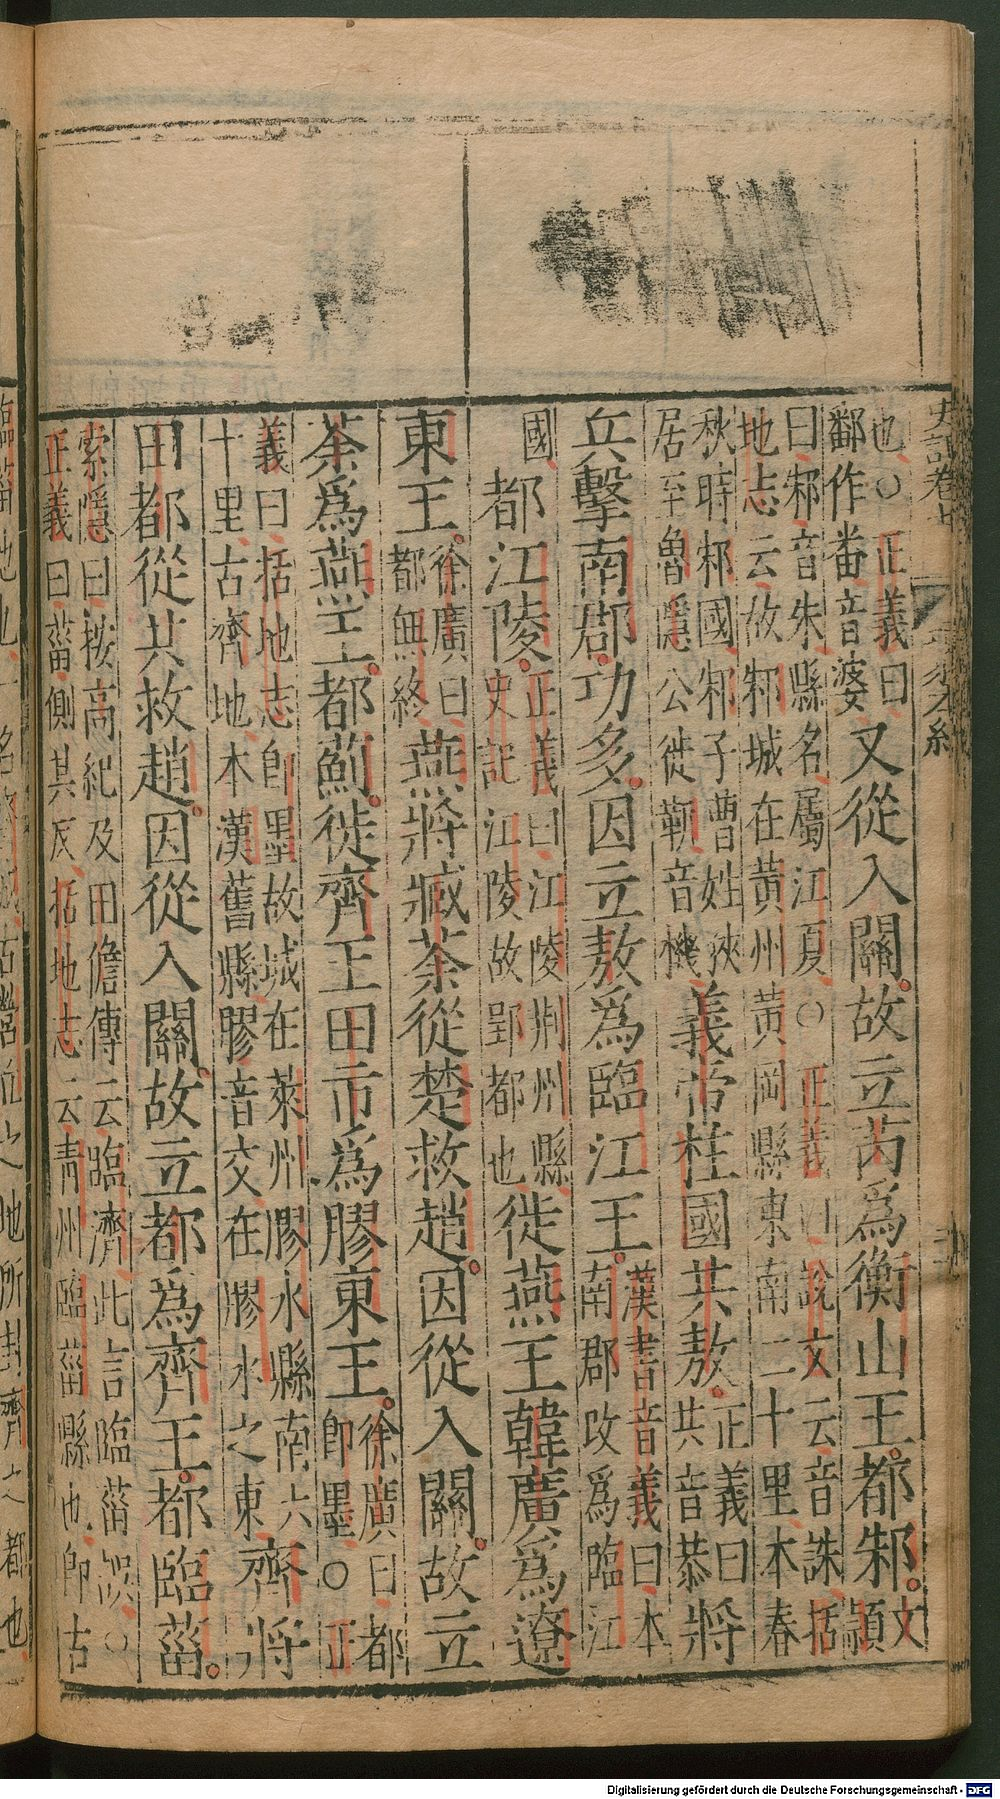 史記卷七 項羽本紀
也○正義曰
鄱作番音婆
又從入關故立芮爲衡山王都邾
文
頴
曰邾音朱縣名屬江夏○正義曰說文云音誅括
地志云故邾城在黃州黃岡縣東南二十里本春
秋時邾國邾子曹姓俠
居至魯隱公徙蘄音機
義帝柱國共敖
正義曰
共音恭
將
兵擊南郡功多因立敖爲臨江王
漢書音義曰本
南郡改爲臨江
國
都江陵
正義曰江陵荆州縣
史記江陵故郢都也
徙燕王韓廣爲遼
東王
徐廣曰
都無終
燕將臧荼從楚救趙因從入關故立
荼爲燕王都薊徙齊王田市爲膠東王
徐廣曰都
即墨○正
義曰括地志即墨故城在萊州膠水縣南六
十里古齊地本漢舊縣膠音交在膠水之東
齊將
田都從共救趙因從入關故立都爲齊王都臨菑
索隱曰按高紀及田儋傳云臨濟此言臨菑誤○
正義曰菑側其反括地志云青州臨菑縣也即古
臨菑地也一名齊城古營丘之地所封齊之都也
Digitalisierung gefördert durch die Deutsche Forschungsgemeinschaft - DFG